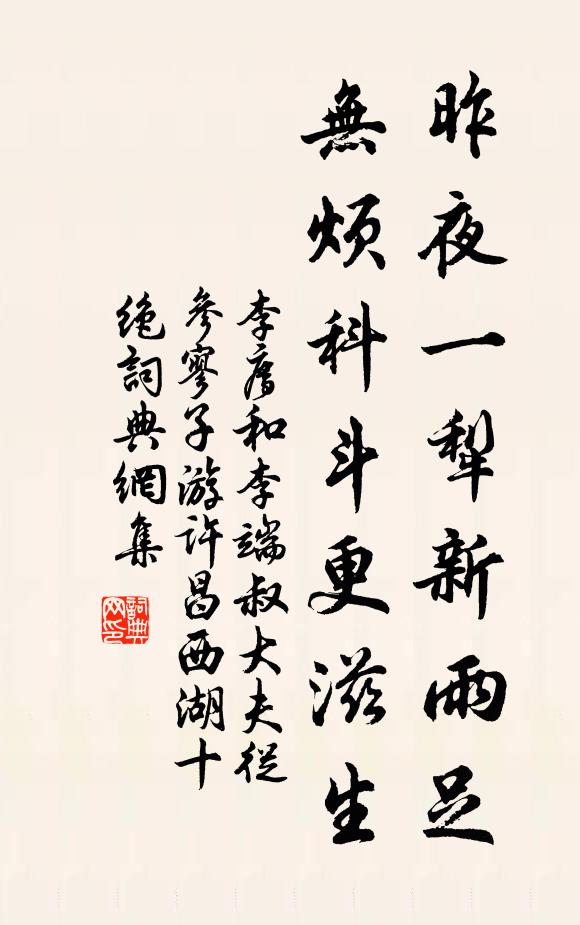 昨夜一犁新雨足
無煩科斗更滋生
李廌和李端叔大夫從
參寥子游許昌西湖十
絶詞典網集
詞典网印